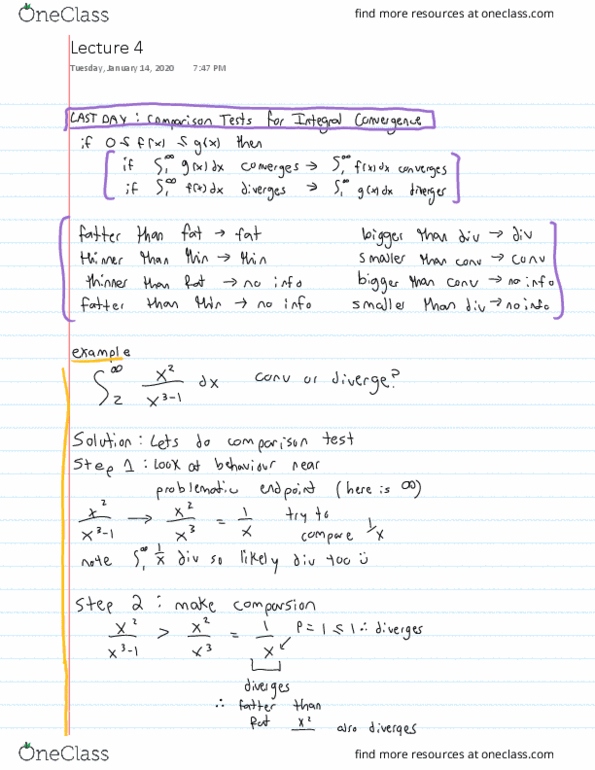 OneClass
find more resources at oneclass.com
Lecture 4
Tuesday, January 14, 2020 7:47 PM
LAST DAY: Comparison Tests for Integral Convergence
if 0 ≤ f(x) ≤ g(x) then
if ∫₁^∞ g(x)dx converges → ∫₁^∞ f(x)dx converges
if ∫₁^∞ f(x)dx diverges → ∫₁^∞ g(x)dx diverges
fatter than fat → fat bigger than div → div
thinner than thin → thin smaller than conv → conv
thinner than fat → no info bigger than conv → no info
fatter than thin → no info smaller than div → no info
example
∫₂^∞ x²/(x³-1) dx conv or diverge?
Solution: Lets do comparison test
Step 1: Look at behaviour near
problematic endpoint (here is ∞)
x²/(x³-1) → x²/x³ = 1/x try to
compare 1/x
note ∫₁^∞ 1/x div so likely div too ü
Step 2: make comparsion
x²/(x³-1) > x²/x³ = 1/x P = 1 ≤ 1 ∴ diverges
diverges
∴ fatter than
fat x² also diverges
OneClass
find more resources at oneclass.com